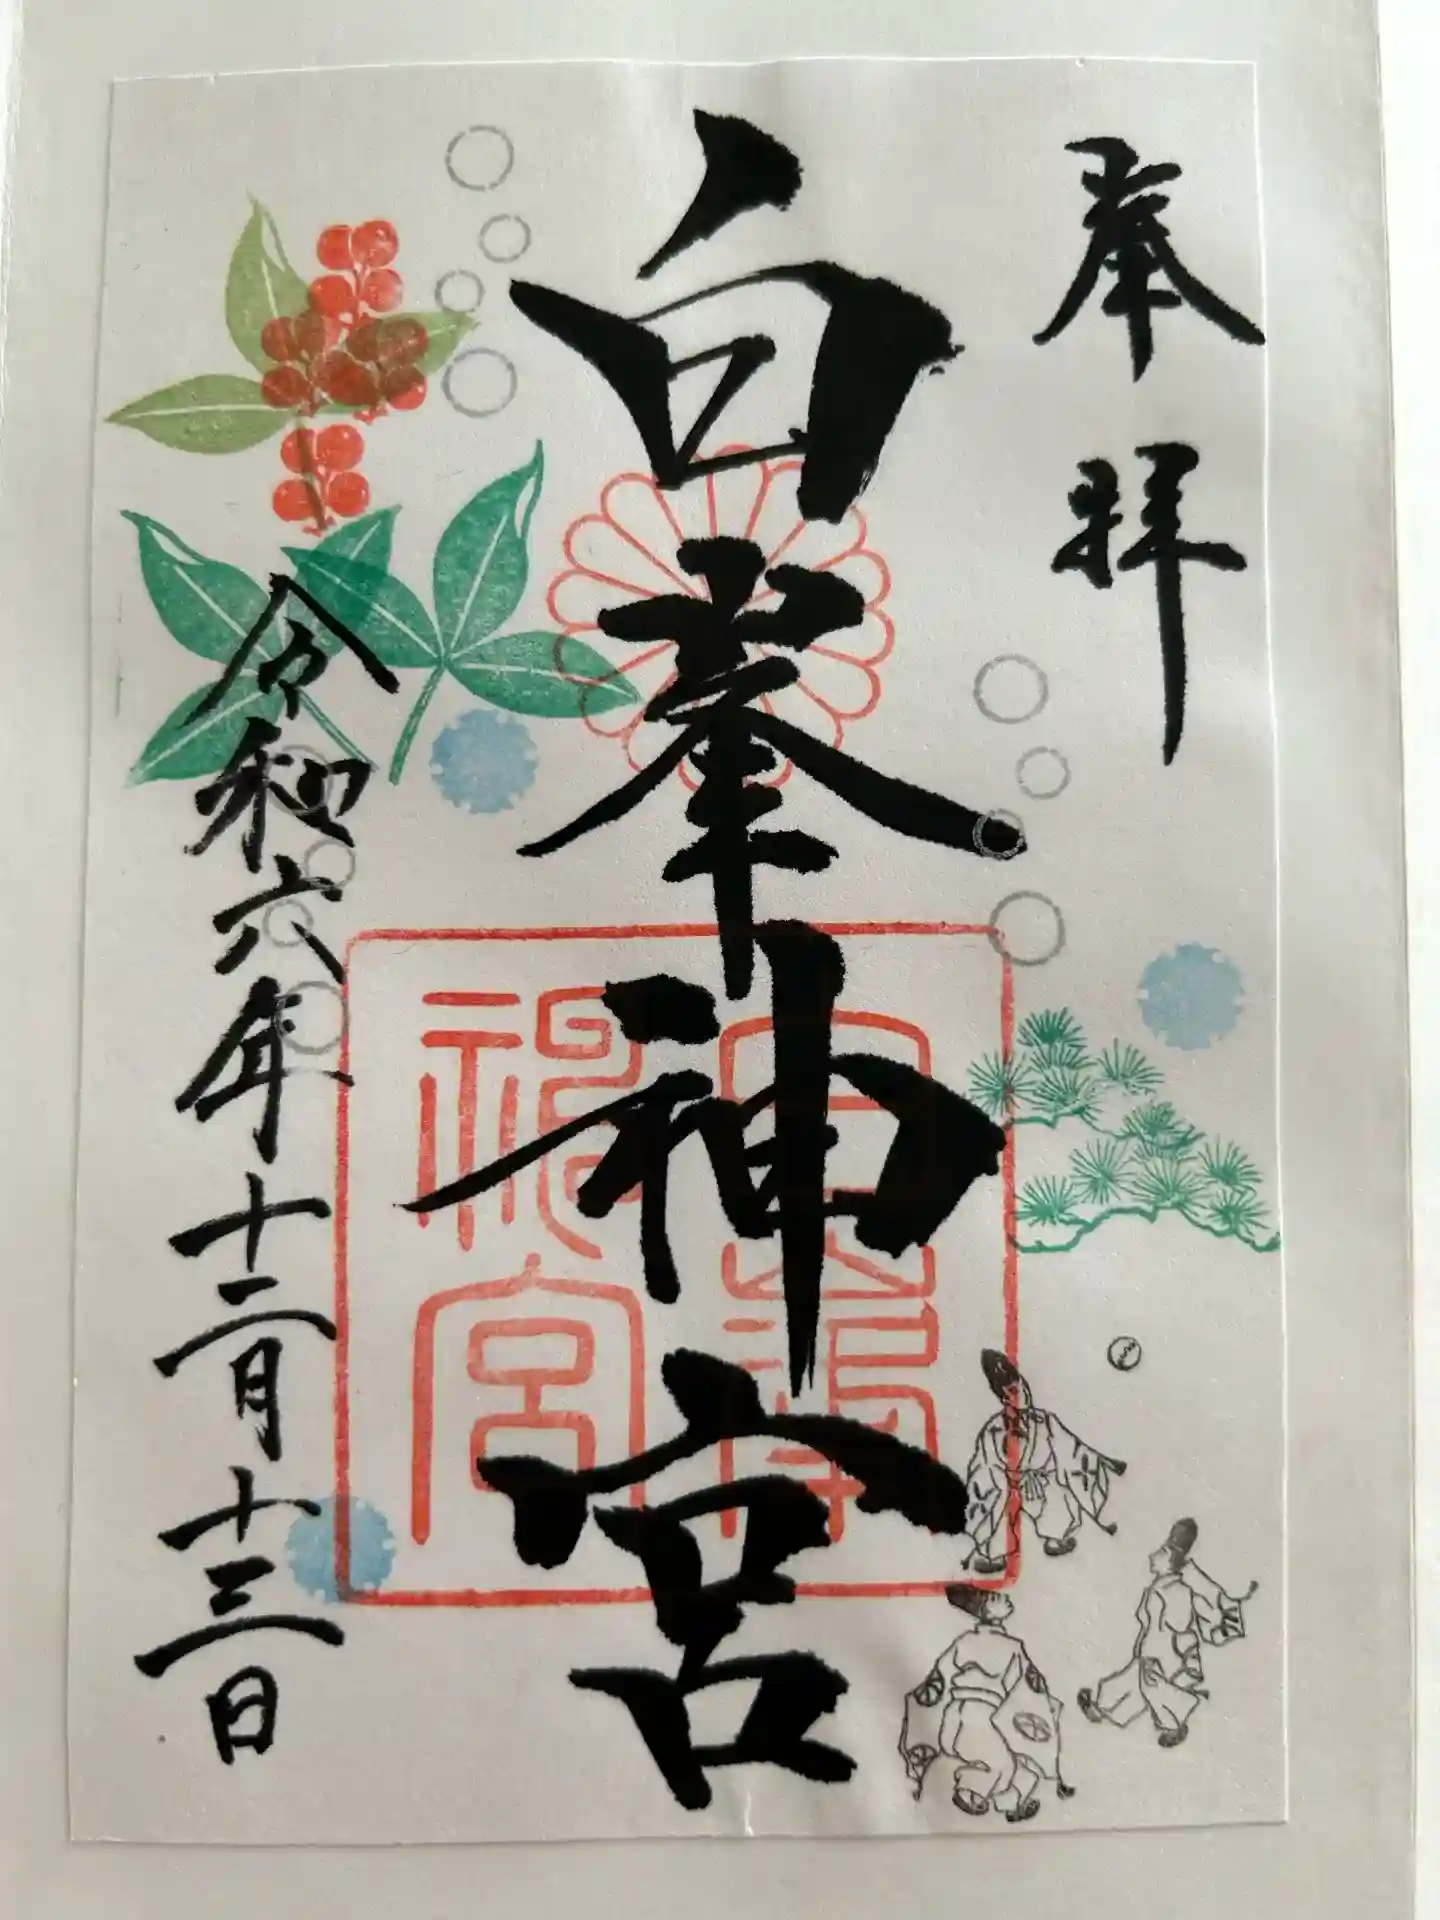 奉拝
白峯神宮
令和六年十二月十三日
白峯神宮